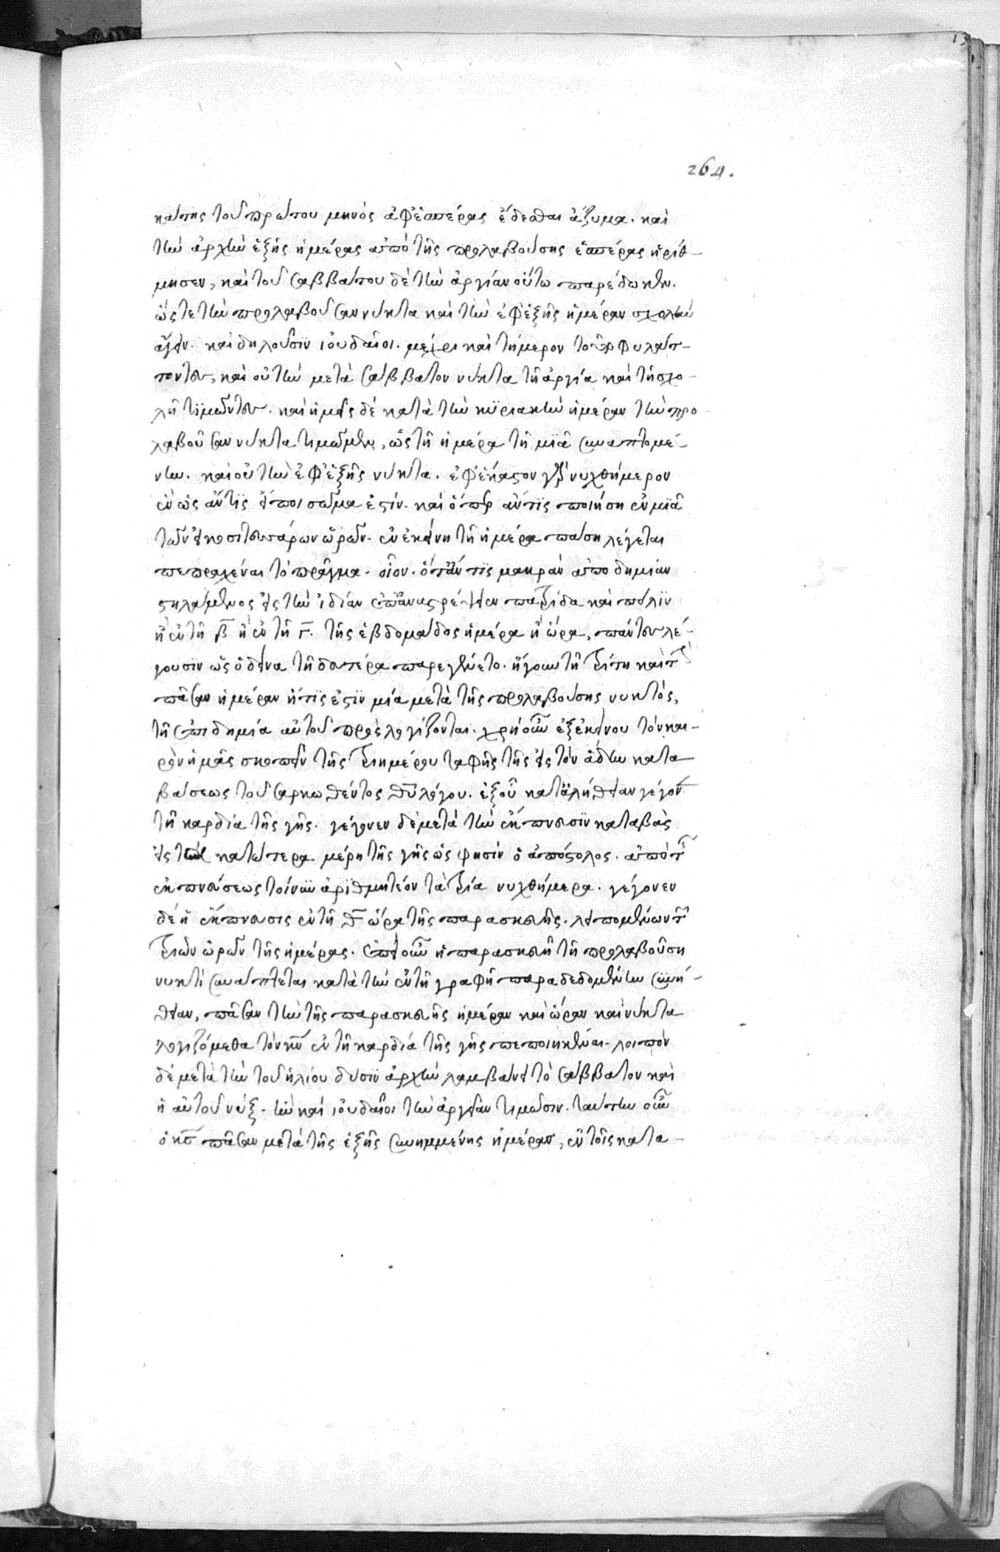 264.
κάτης τοῦ πρώτου μηνὸς ἀφἑσπέρας ἔδεσθαι ἄζυμα. καὶ
τὴν ἀρχὴν ἑξῆς ἡμέρας ἀπὸ τῆς προλαβούσης ἑσπέρας ἠρίθ-
μησεν, καὶ τοῦ σαββάτου δὲ τὴν ἀργίαν οὕτω παρέδωκεν.
ὥστε τὴν προλαβοῦσαν νύκτα καὶ τὴν ἐφἑξῆς ἡμέραν σχολὴν
ἄγειν. καὶ δηλοῦσιν ἰουδαῖοι. μέχρι καὶ τήμερον τοῦτο φυλάτ-
τοντες, καὶ οὐ τὴν μετὰ σάββατον νύκτα τῆ ἀργία καὶ τῆ σχο-
λῆ τιμῶντες. καὶ ἡμεῖς δὲ κατὰ τὴν κυριακὴν ἡμέραν τὴν προ
λαβοῦσαν νύκτα τιμῶμεν, ὡς τῆ ἡμέρα τῆ μιᾶ συναπτομέ-
νην. καὶ οὐ τὴν ἐφἑξῆς νύκτα. ἐφἕκαστον γὰρ νυχθήμερον
ἐστίν. καὶ ὅπερ ἄν τις ποιήση ἐν μιᾶ
τῶν εἰκοσιτεσσάρων ὡρῶν. ἐν ἐκείνη τῆ ἡμέρα πάση λέγεται
πεπραχέναι τὸ πρᾶγμα. οἷον. ὅτάν τις μακρὰν ἀποδημίαν
στηλάμενος εἰς τὴν ἰδίαν ἐπαναστρέψειν πατρίδα καὶ πόλιν
ἢ ἐν τῆ β̅ ἢ ἐν τῆ γ̅. τῆς ἑβδομάδος ἡμέρα ἢ ὥρα, πάντες λέ-
γουσιν ὡς ὁ δεῖνα τῆ δευτέρα παρεγένετο. ἤγουν τῆ τρίτη καὶ τ
πᾶσαν ἡμέραν ἥτις ἐστὶν μία μετὰ τῆς προλαβούσης νυκτὸς,
τῆ ἐπιδημία αὐτοῦ προσλογίζονται. χρὴ οὖν ἐξἐκείνου τὸν και-
ρὸν ἡμᾶς σκοπεῖν τῆς τριημέρου ταφῆς τῆς εἰς τὸν ἅδην κατα
βάσεως τοῦ σαρκωθέντος θ̅υ̅ λόγου. ἐξοῦ κατἀλήθειαν γέγονεν
τῆ καρδία τῆς γῆς. γέγονεν δὲ μετὰ τὴν ἐκπνευσιν καταβὰς
εἰς τὰ κατώτερα μέρη τῆς γῆς ὥς φησιν ὁ ἀπόστολος. ἀπὸ τῆς
ἐκπνεύσεως τοίνυν ἀριθμητέον τὰ τρία νυχθήμερα. γέγονεν
δὲ ἡ ἔκπνευσις ἐν τῆ θ̅ ὥρα τῆς παρασκευῆς. λειπομένων τῶν
τριῶν ὡρῶν τῆς ἡμέρας. ἐπεὶ οὖν ἡ παρασκευὴ τῆ προλαβούση
νυκτὶ συνάπτεται κατὰ τὴν ἐν τῆ γραφῆ παραδεδομένην συνή-
θειαν, πᾶσαν τὴν τῆς παρασκευῆς ἡμέραν καὶ ὥραν καὶ νύκτα
λογιζόμεθα τὸν κ̅ν̅ ἐν τῆ καρδία τῆς γῆς πεποιηκέναι. λοιπὸν
δὲ μετὰ τὴν τοῦ ἡλίου δύσιν ἀρχὴν λαμβάνει τὸ σάββατον καὶ
ἡ αὐτοῦ νύξ. ἣν καὶ ἰουδαῖοι τὴν ἀργείαν τιμῶσιν. ταύτην οὖν
ὁ κ̅ς̅ πᾶσαν μετὰ τῆς ἑξῆς συνημμένης ἡμέρας, ἐν τοῖς κατα-